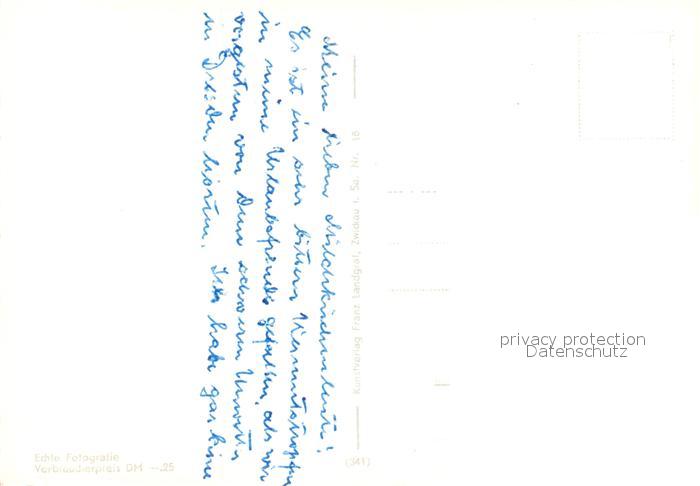 Meine lieben
Es ist ein sehr bitterer Wermutstropfen
in meine Urlaubsfreude gefallen, als wir
vorgestern von dem schweren Unwetter
in Dresden hörten. Ich habe gar keine
Kunstverlag Franz Landgraf, Zwickau i. Sa. Nr. 18
(341)
Echte Fotografie
Verbraucherpreis DM —.25
privacy protection
Datenschutz